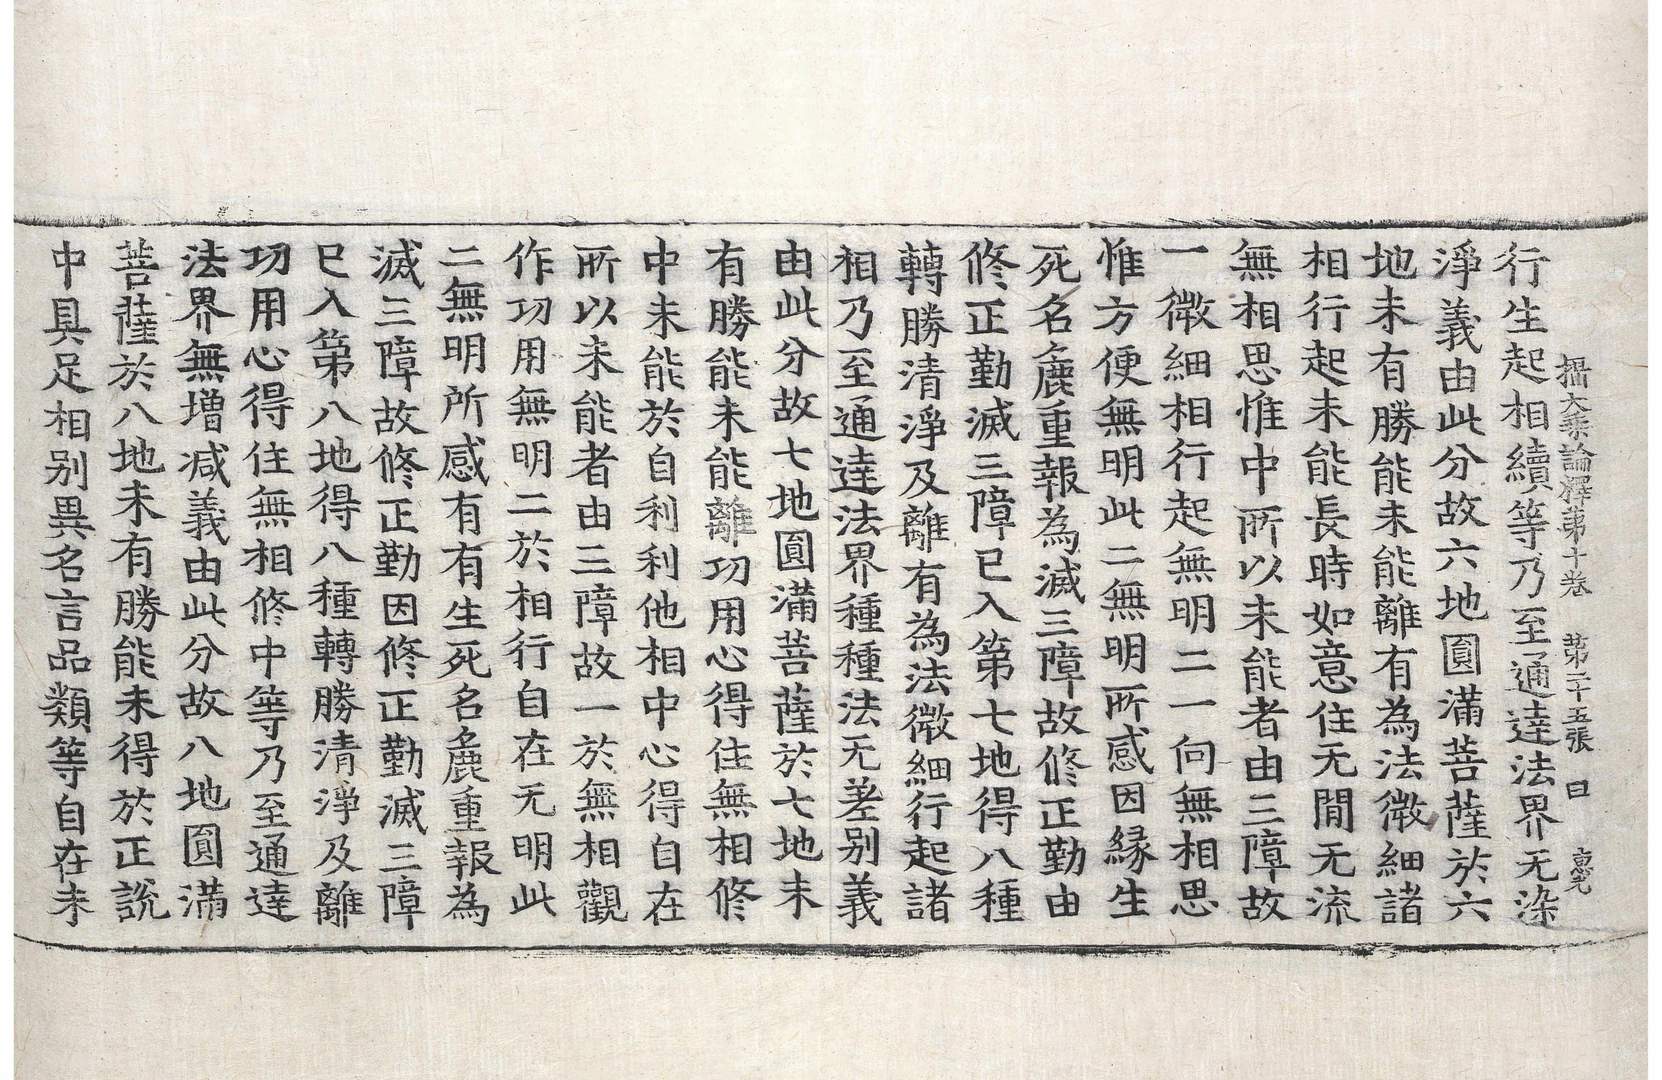 攝大乘論釋第十卷　第二十五張　曰　惠光
行生起相續等乃至通達法界无染
淨義由此分故六地圓滿菩薩於六
地未有勝能未能離有為法微細諸
相行起未能長時如意住无間无流
無相思惟中所以未能者由三障故
一微細相行起無明二一向無相思
惟方便無明此二無明所感因緣生
死名麁重報為滅三障故修正勤由
修正勤滅三障已入第七地得八種
轉勝清淨及離有為法微細行起諸
相乃至通達法界種種法无差別義
由此分故七地圓滿菩薩於七地未
有勝能未能離功用心得住無相修
中未能於自利利他相中心得自在
所以未能者由三障故一於無相觀
作功用無明二於相行自在无明此
二無明所感有有生死名麁重報為
滅三障故修正勤因修正勤滅三障
已入第八地得八種轉勝清淨及離
功用心得住無相修中等乃至通達
法界無增減義由此分故八地圓滿
菩薩於八地未有勝能未得於正說
中具足相別異名言品類等自在未